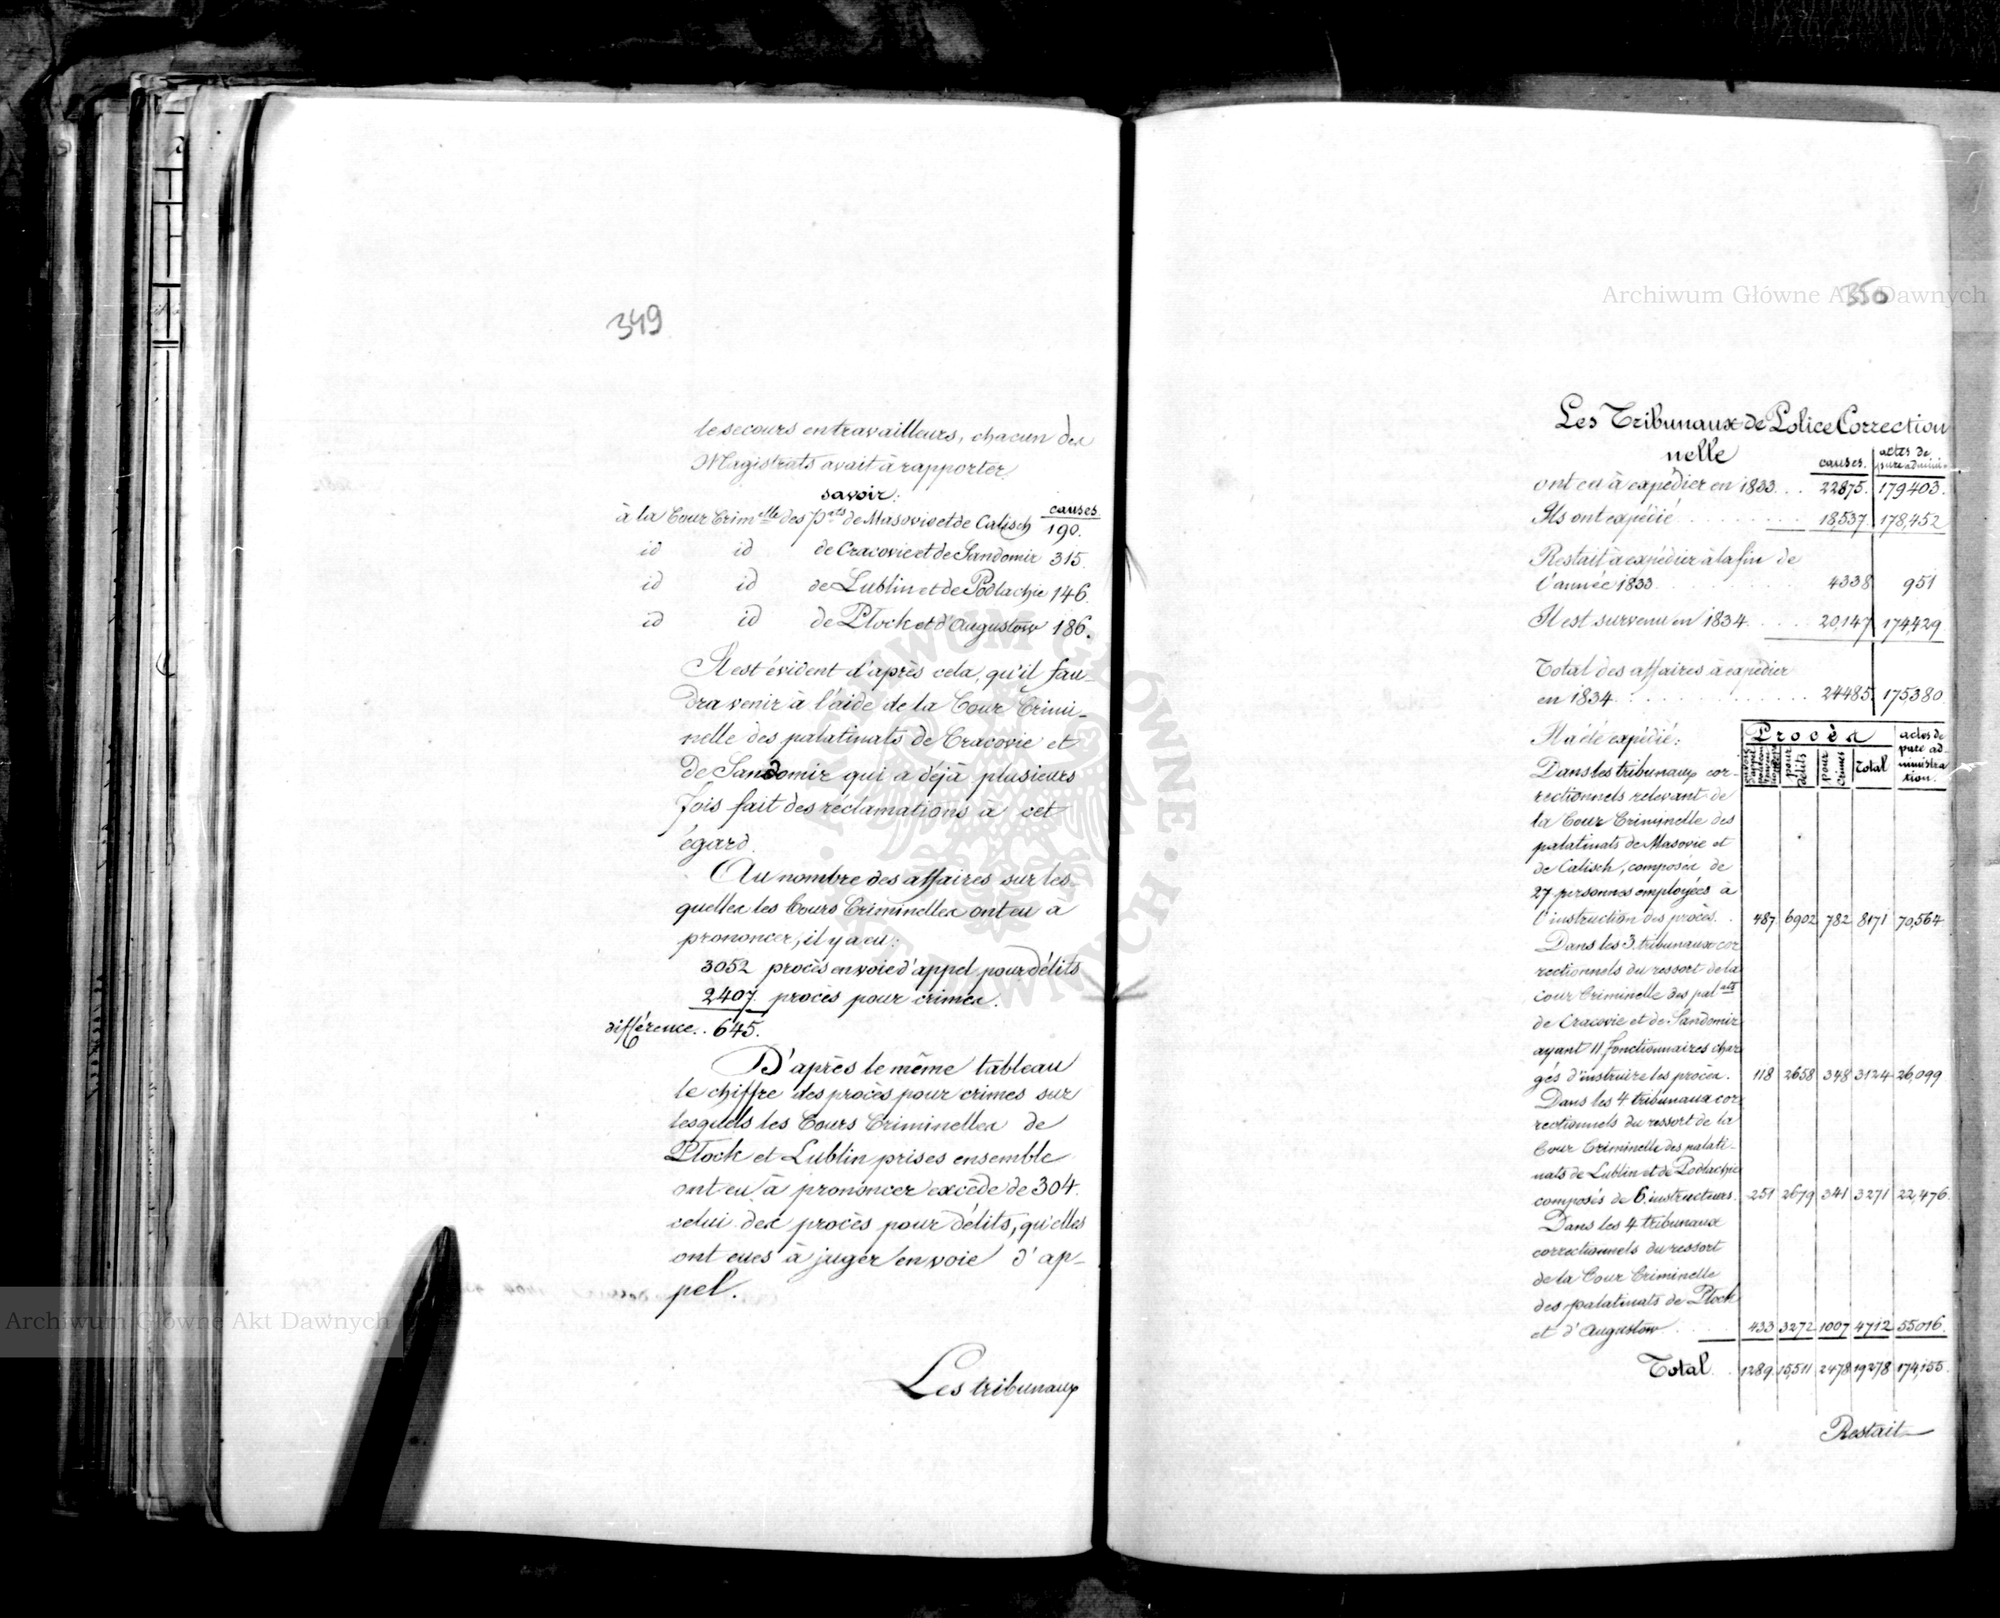 349
le secours en travailleurs, chacun des
Magistrats avait à rapporter
savoir:
causes
à la Cour Crimelle des Pats de Masovie et de Calisch 190.
id id de Cracovie et de Sandomir 315.
id id de Lublin et de Podlachie 146.
id id de Plock et d'Augustow 186.
Il est évident d'après cela, qu'il fau-
dra venir à l'aide de la Cour Crimi-
nelle des palatinats de Cracovie et
de Sandomir qui a déjà plusieurs
fois fait des réclamations à cet
égard.
Au nombre des affaires sur les-
quelles les Cours Criminelles ont eu à
prononcer, il y a eu:
3052 procès en voie d'appel pour délits
2407 procès pour crimes.
différence.. 645.
D'après le même tableau
le chiffre des procès pour crimes sur
lesquels les Cours Criminelles de
Plock et Lublin prises ensemble
ont eu à prononcer excède de 304.
celui des procès pour délits, qu'elles
ont eues à juger en voie d'ap-
pel.
Les tribunaux
350
Les Tribunaux de Police Correction
nelle
causes. actes de pure adminion
ont eu à expédier en 1833... 22875. 179403.
Ils ont expédié 18,537. 178,452
Restait à expédier à la fin de
l'année 1833 4338 951
Il est survenu en 1834 20,147 174,429
Total des affaires à expédier
en 1834 24485. 175,380
Il a été expédié:
Procès
pour délits
pour crimes
Total
actes de
pure ad-
ministra
tion.
Dans les tribunaux cor-
rectionnels relevant de
la Cour Criminelle des
palatinats de Masovie et
de Calisch, composés de
27 personnes employées à
l'instruction des procès. 487 6902 782 8171 70,564
Dans les 3 tribunaux cor
rectionnels du ressort de la
cour Criminelle des palats
de Cracovie et de Sandomir
ayant 11 fonctionnaires char
gés d'instruire les procès. 118 2658 348 3124 26,099
Dans les 4 tribunaux cor
rectionnels du ressort de la
Cour Criminelle des palati-
nats de Lublin et de Podlachie
composés de 6 instructeurs. 251 2679 341 3271 22,476.
Dans les 4 tribunaux
correctionnels du ressort
de la Cour Criminelle
des palatinats de Plock
et d'Augustow 433 3272 1007 4712 55016.
Total 1289 15,511 2478 19278 174,155.
Restait
Archiwum Główne Akt Dawnych
Archiwum Główne Akt Dawnych
ARCHIWUM GŁÓWNE AKT DAWNYCH